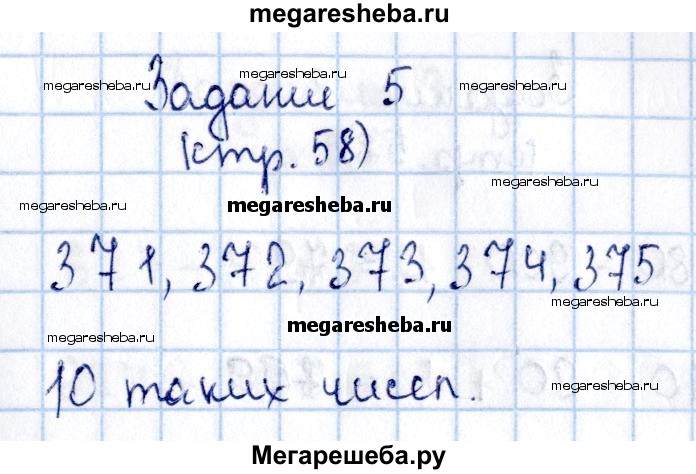 megaresheba.ru
Задание 5
megaresheba.ru megaresheba.ru megaresheba.ru
(стр. 58)
megaresheba.ru
megaresheba.ru megaresheba.ru
371, 372, 373, 374, 375
megaresheba.ru
megaresheba.ru
megaresheba.ru
10 таких чисел.
megaresheba.ru
Мегарешеба.ру